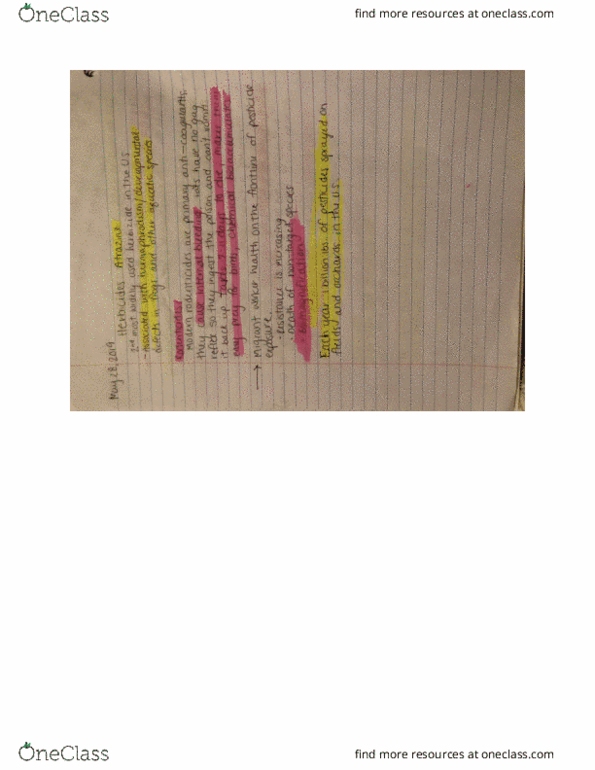 OneClass
find more resources at oneclass.com
May 28, 2019
Herbicides Atrazine
2nd most widely used herbicide in the U.S
- associated with hermaphrodism/developmental
defects in frogs and other aquatic species
modern rodenticides are primary anti-coagulants,
they cause internal bleeding, rats have no gag
reflex so they ingest the poison and can't vomit
it back up. Takes days to die makes them
easy prey to birds, chemical bioaccumulates
→ Migrant worker health on the frontline of pesticide
exposure
- resistance is increasing
- death of non-target species
- biomagnification
Each year 1 billion lbs. of pesticides sprayed on
fields and orchards in the U.S.
OneClass
find more resources at oneclass.com